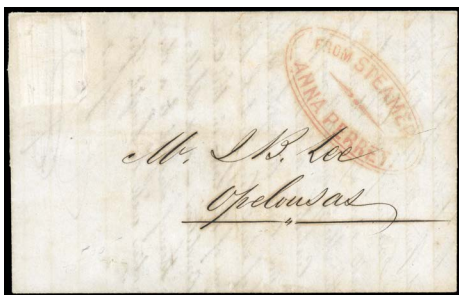 FROM STEAMER
ANNA PERRET
Mr. I B. Lee
Opelousas